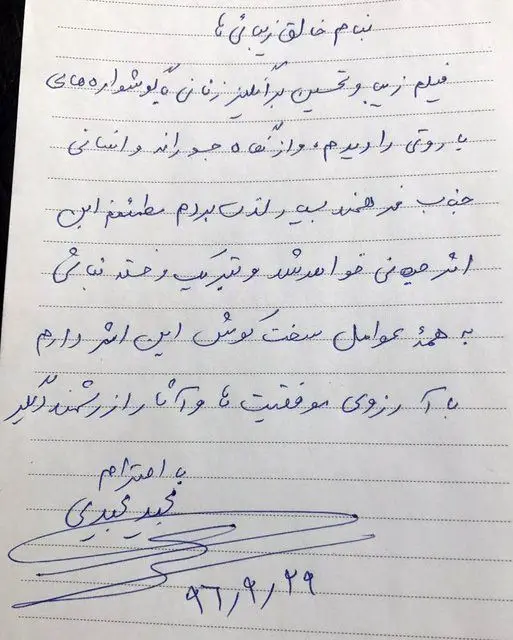 بنام خالق زیبائی ها
فیلم زیبا و تحسین برانگیز زنانی با گوشواره های
باروتی را دیدم، و از نگاه جسورانه و انسانی
جناب فرهمند بسیار لذت بردم مطمئنم این
اثر جهانی خواهد شد و تبریک و خسته نباشی
به همهٔ عوامل سخت کوش این اثر دارم
با آرزوی موفقیت ها و آثار ارزشمند دیگر
با احترام
مجید مجیدی
۹۶/۹/۲۹